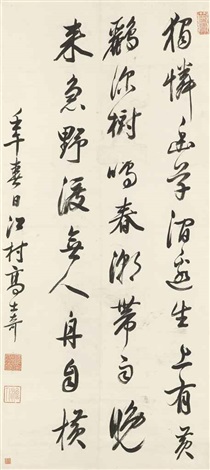 獨憐幽草澗邊生上有黃
鸝深樹鳴春潮帶雨晚
來急野渡無人舟自橫
春日江村高士奇